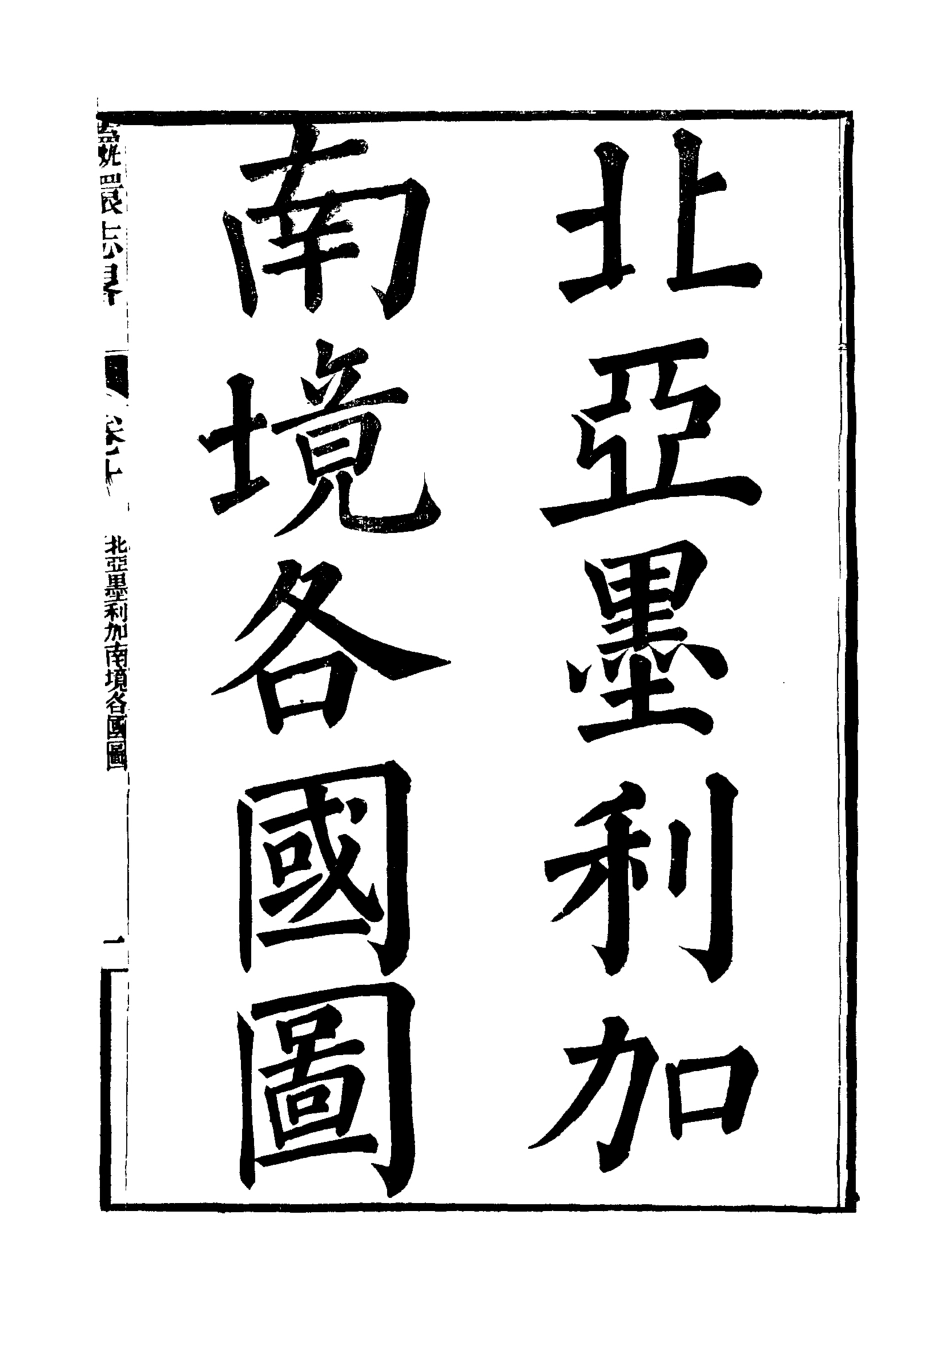 北亞墨利加
南境各國圖
瀛環志畧
卷十
北亞墨利加南境各國圖
一